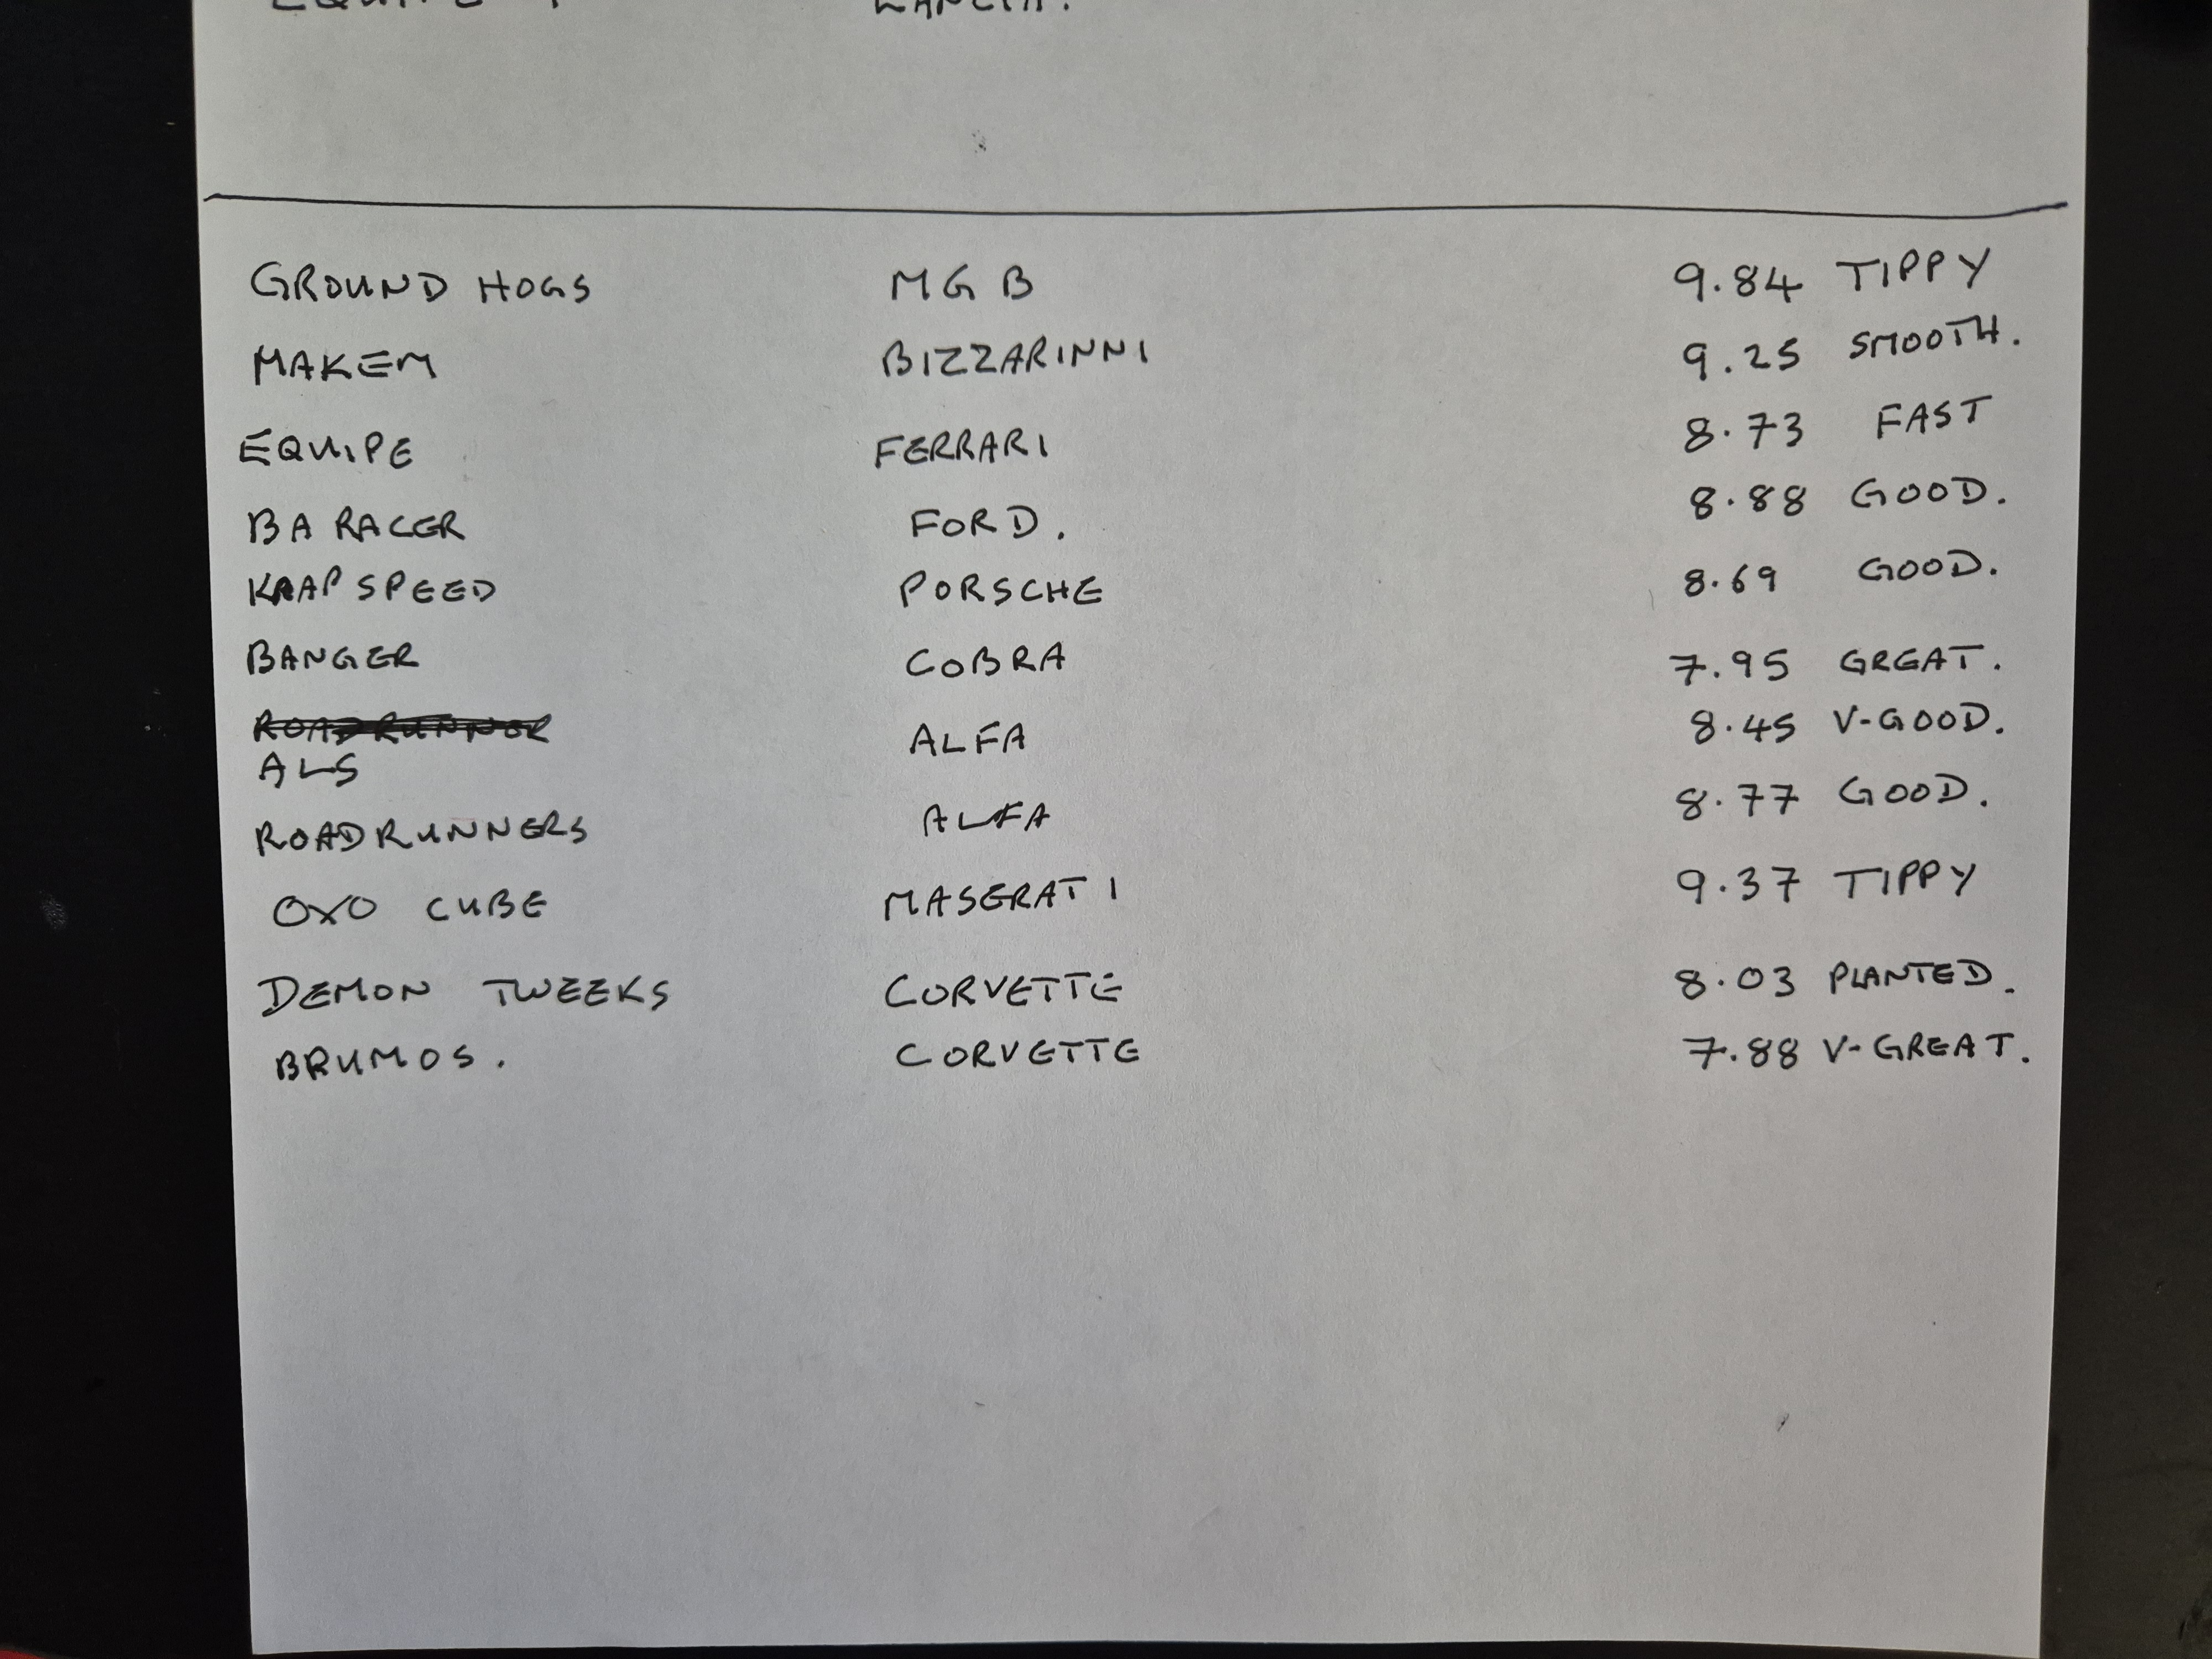 GROUND HOGS MGB 9.84 TIPPY
MAKEM BIZZARINNI 9.25 SMOOTH.
EQUIPE FERRARI 8.73 FAST
BA RACER FORD. 8.88 GOOD.
KAAPSPEED PORSCHE 8.69 GOOD.
BANGER COBRA 7.95 GREAT.
ROADRUNNER ALFA 8.45 V-GOOD.
ALS
ROADRUNNERS ALFA 8.77 GOOD.
OXO CUBE MASERATI 9.37 TIPPY
DEMON TWEEKS CORVETTE 8.03 PLANTED.
BRUMOS. CORVETTE 7.88 V-GREAT.